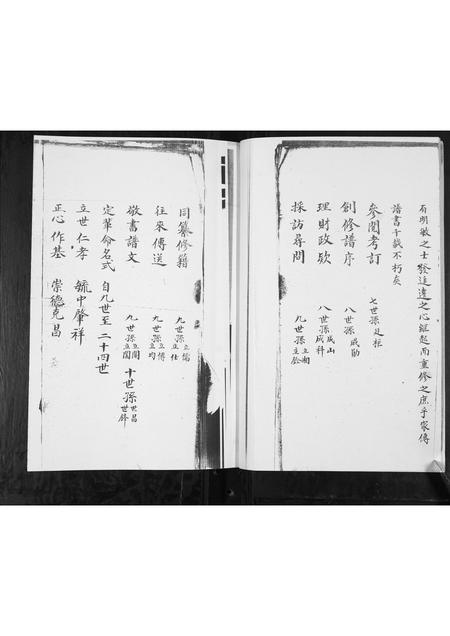 有明敏之士發追遠之心繼起而重修之庶乎家傳
譜書千載不朽矣
參閱考訂 七世孫廷柱
創修譜序 八世孫成勛
理財政欵 八世孫成山成科
採訪尋問 九世孫立相立於
同纂修籍 九世孫立儒立仕
往來傳送 九世孫立傅立均
敬書譜文 九世孫立閣立閣 十世孫世昌世舜
定輩命名式 自九世至二十四世
立世仁孝 毓中肇祥
正心作基 崇德克昌